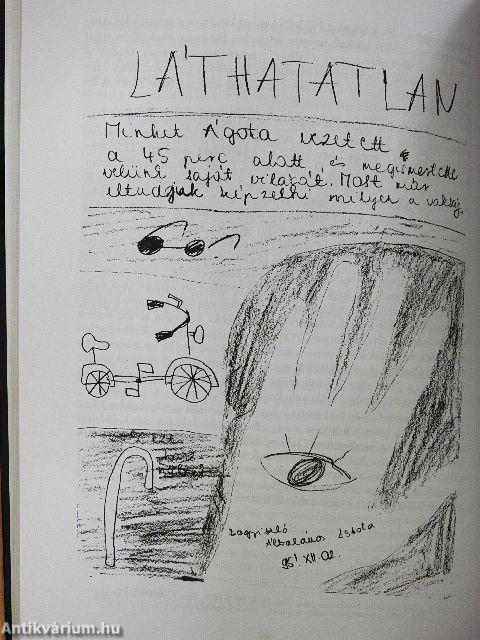 LÁTHATATLAN
Minket Ágota vezetett
a 45 perc alatt és megismertette
velünk saját világát. Most már
eltudjuk képzelni milyen a valóság.
Általános Iskola
95' XII. 02.
Antikvárium.hu